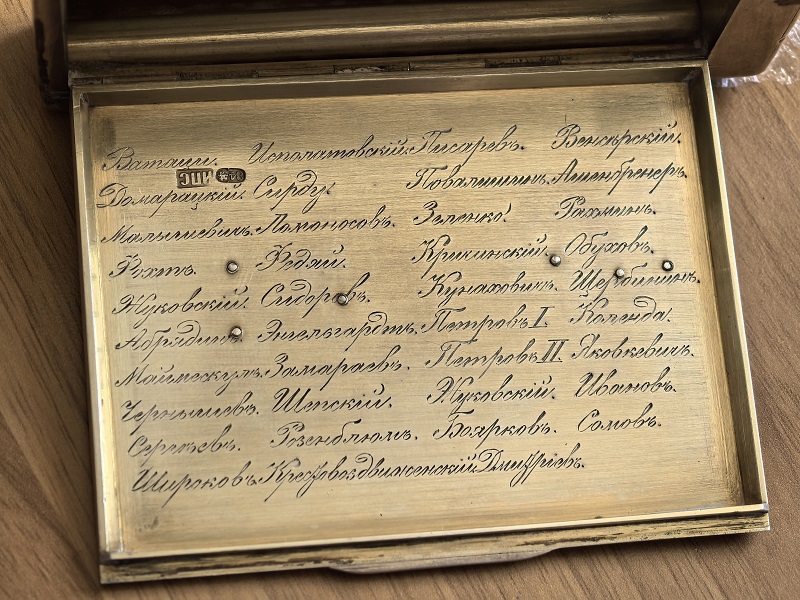 Исполатовскій. Писаревъ. Венгерскій.
Домарацкій. Сирду. Повалишинъ. Ашенбренеръ.
Малышевичъ. Ломоносовъ. Зеленко. Рахминъ.
Рохтъ. Федяй. Кричинскій. Обуховъ.
Жуковскій. Сидоровъ. Кунаховичъ. Щербининъ.
Энгельгардтъ. Петровъ I. Коленда.
Замараевъ. Петровъ II. Яковкевичъ.
Чернышевъ. Шепскій. Жуковскій. Ивановъ.
Сергѣевъ. Розенблюмъ. Боярковъ. Сомовъ.
Широковъ. Крестовоздвиженскій. Дмитріевъ.
ИПС